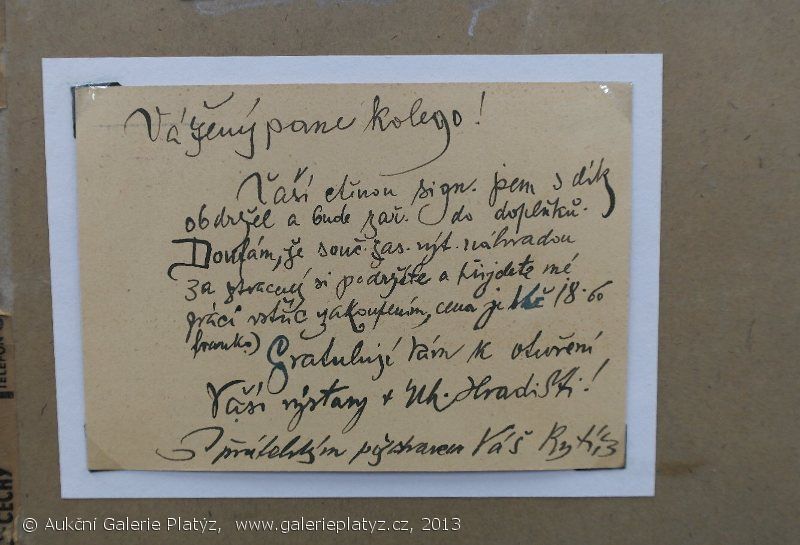 Vážený pane kolego!
Vaší ctěnou sign. jsem s dík
obdržel a bude zař. do doplňků.
Doufám, že souč. zas. výt. náhradou
za ztracený si podržíte a přijdete mé
práci vstříc zakoupením, cena je Kč 18.60
franko.) Gratuluji Vám k otevření
Vaší výstavy v Uh. Hradišti!
S přátelským pozdravem Váš Rytíř
TELEFON
ČECHY
© Aukční Galerie Platýz, www.galerieplatyz.cz, 2013